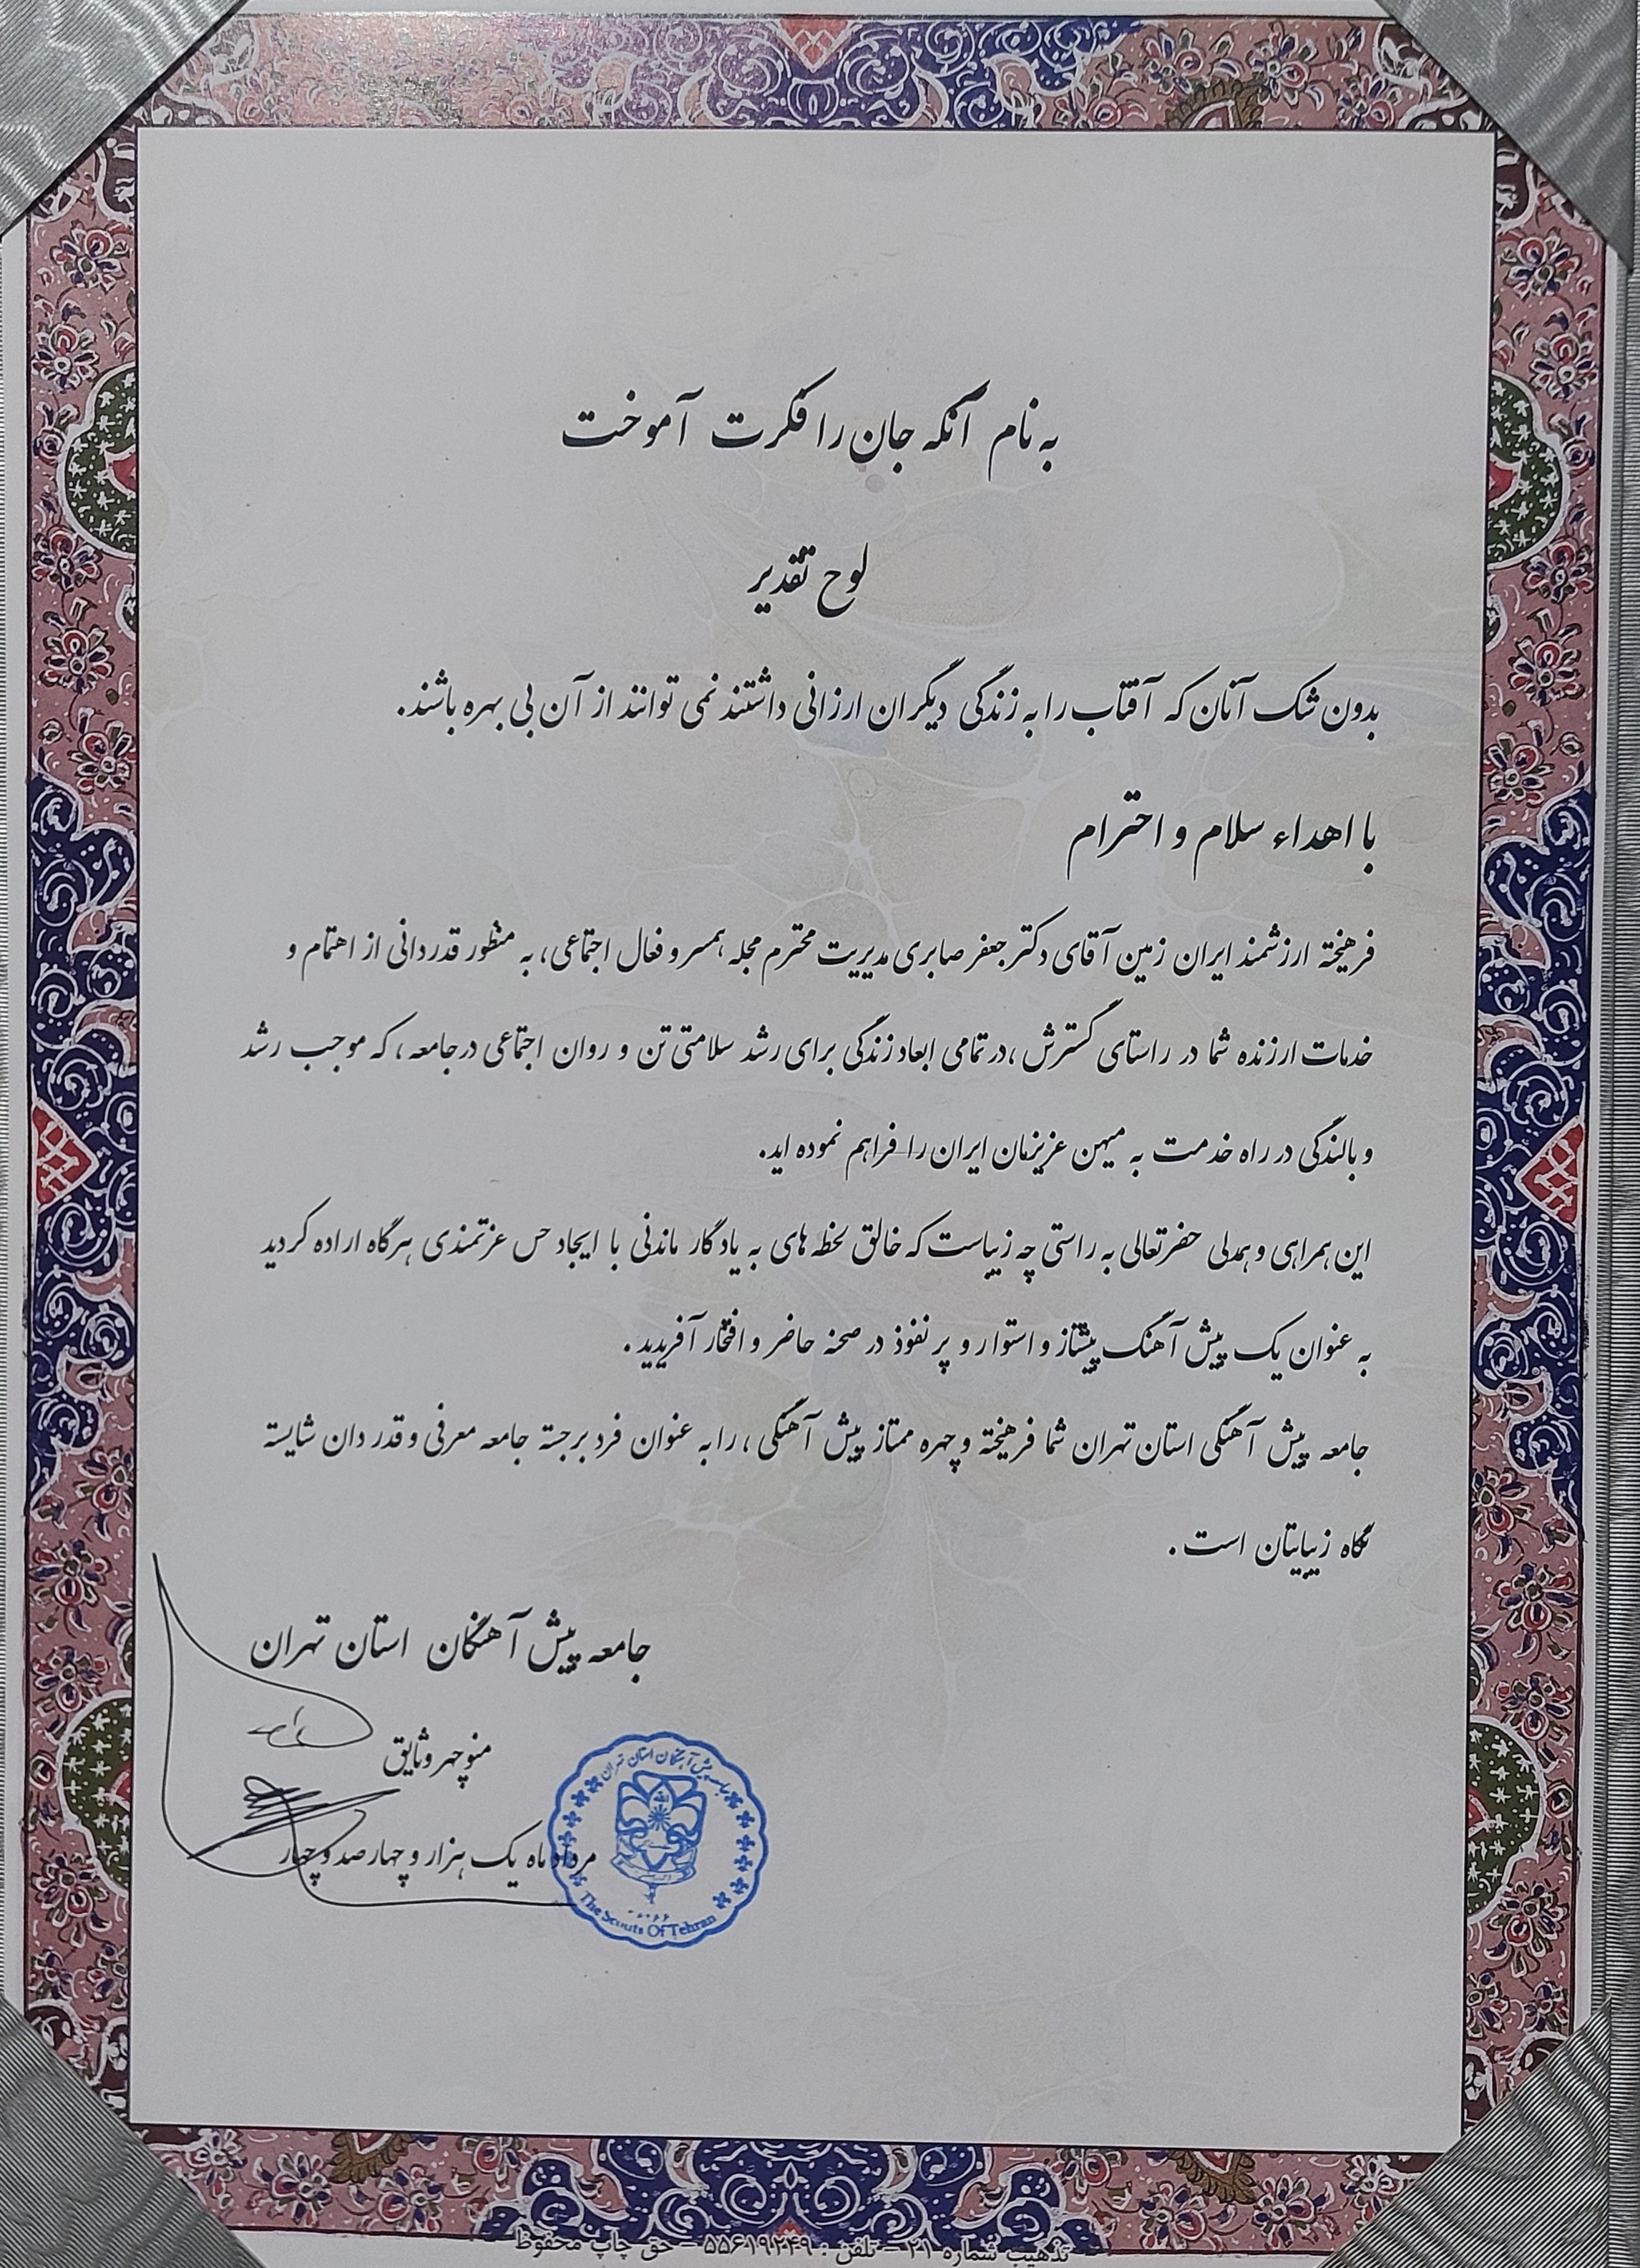 به نام آنکه جان را فکرت آموخت
لوح تقدیر
بدون شک آنان که آفتاب را به زندگی دیگران ارزانی داشتند نمی توانند از آن بی بهره باشند.
با اهداء سلام و احترام
فرهیخته ارزشمند ایران زمین آقای دکتر جعفر صابری مدیریت محترم مجله همسر و فعال اجتماعی، به منظور قدردانی از اهتمام و
خدمات ارزنده شما در راستای گسترش ،در تمامی ابعاد زندگی برای رشد سلامتی تن و روان اجتماعی در جامعه ، که موجب رشد
و بالندگی در راه خدمت به میهن عزیزمان ایران را فراهم نموده اید.
این همراهی و همدلی حضرتعالی به راستی چه زیباست که خالق لحظه های به یادگار ماندنی با ایجاد حس عزتمندی هرگاه اراده کردید
به عنوان یک پیش آهنگ پیشتاز و استوار و پر نفوذ در صحنه حاضر و افتخار آفریدید .
جامعه پیش آهنگی استان تهران شما فرهیخته و چهره ممتاز پیش آهنگی ، را به عنوان فرد برجسته جامعه معرفی و قدر دان شایسته
نگاه زیبایتان است .
جامعه پیش آهنگان استان تهران
منوچهر وثایق
مرداد ماه یک هزار و چهار صد و چهار
جامعه پیش آهنگان استان تهران
The Scouts Of Tehran
تذهیب شماره ۲۱ – تلفن : ۵۵۶۱۹۲۴۹ – حق چاپ محفوظ